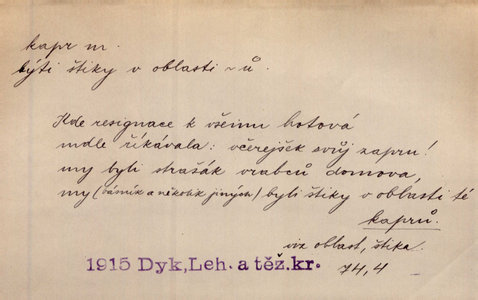 kapr m.
býti štiky v oblasti ~ů.
Kde resignace k všemu hotová
mdle říkávala: včerejšek svůj zapru!
my byli strašák vrabců domova,
my (básník a několik jiných) byli štiky v oblasti té
kaprů.
viz oblast, štika.
1915 Dyk, Leh. a těž. kr. 74,4